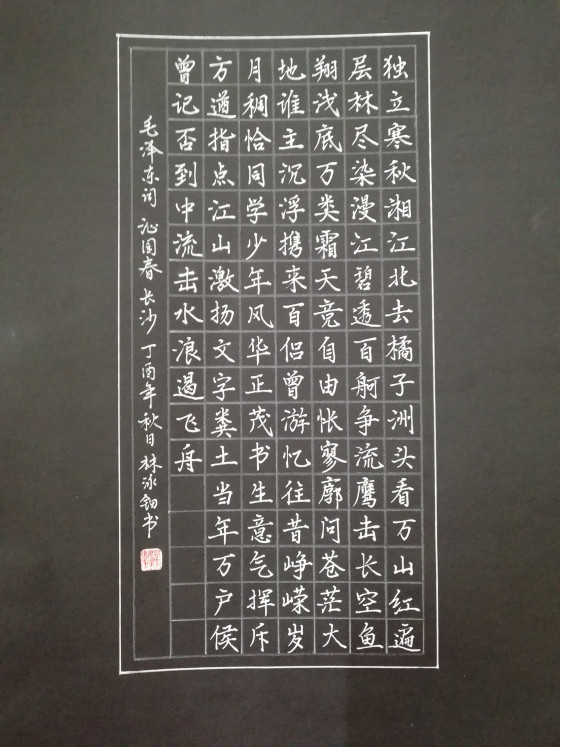 独立寒秋湘江北去橘子洲头看万山红遍
层林尽染漫江碧透百舸争流鹰击长空鱼
翔浅底万类霜天竞自由怅寥廓问苍茫大
地谁主沉浮携来百侣曾游忆往昔峥嵘岁
月稠恰同学少年风华正茂书生意气挥斥
方遒指点江山激扬文字粪土当年万户侯
曾记否到中流击水浪遏飞舟
毛泽东词 沁园春 长沙 丁酉年秋日 林冰书